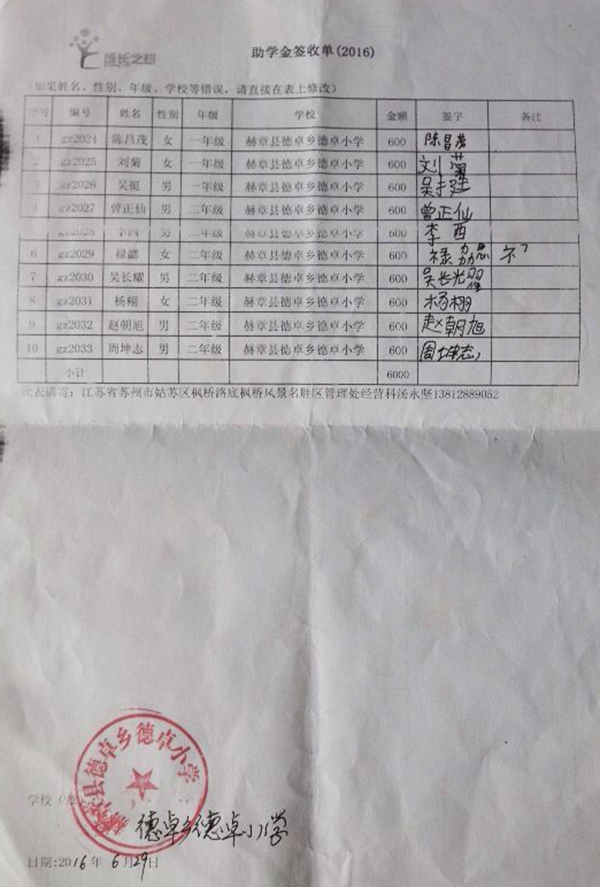 成长之树
助学金签收单(2016)
(如果姓名、性别、年级、学校等错误，请直接在表上修改)
序号 编号 姓名 性别 年级 学校 金额 签字 备注
1 gz2024 陈昌茂 女 一年级 赫章县德卓乡德卓小学 600 陈昌茂
2 gz2025 刘菊 女 一年级 赫章县德卓乡德卓小学 600 刘菊
3 gz2026 吴挺 男 一年级 赫章县德卓乡德卓小学 600 吴挺
4 gz2027 曾正仙 男 二年级 赫章县德卓乡德卓小学 600 曾正仙
gz2028 李西 男 二年级 赫章县德卓乡德卓小学 600 李西
6 gz2029 禄勰 女 二年级 赫章县德卓乡德卓小学 600 禄勰
7 gz2030 吴长耀 男 二年级 赫章县德卓乡德卓小学 600 吴长耀
8 gz2031 杨栩 女 二年级 赫章县德卓乡德卓小学 600 杨栩
9 gz2032 赵朝旭 男 二年级 赫章县德卓乡德卓小学 600 赵朝旭
10 gz2033 周坤志 男 二年级 赫章县德卓乡德卓小学 600 周坤志
小计 6000
此表请寄：江苏省苏州市姑苏区枫桥路底枫桥风景名胜区管理处经营科汤永坚13812889052
赫章县德卓乡德卓小学
学校（章）
德卓乡德卓小学
日期:2016年6月29日